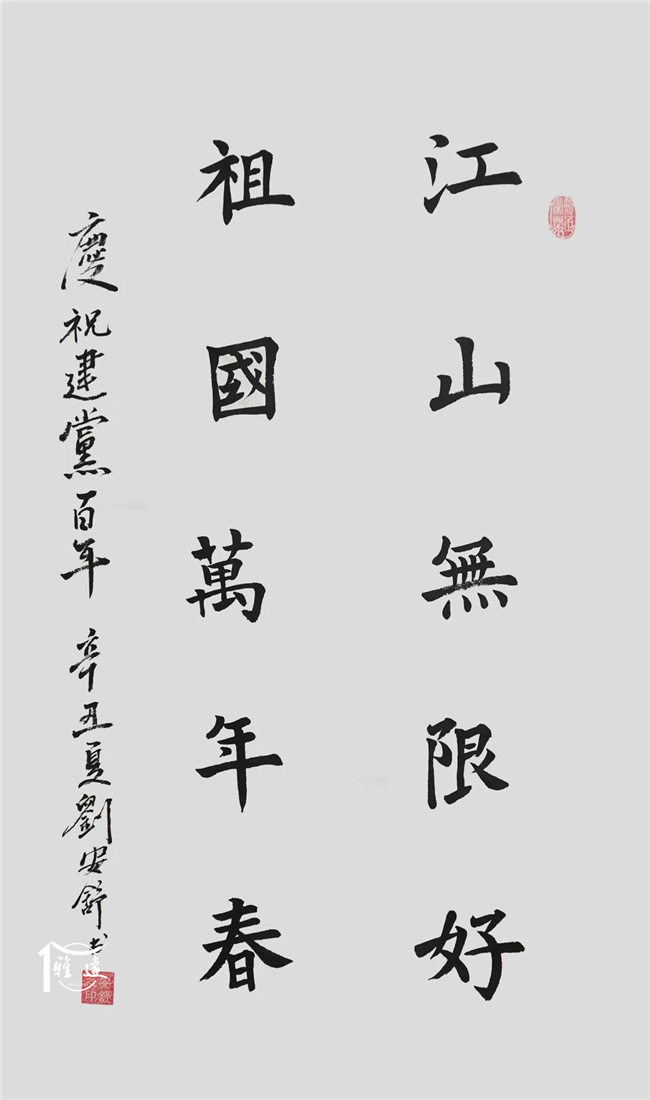 江山無限好
祖國萬年春
慶祝建黨百年 辛丑夏劉安舒书
雅道